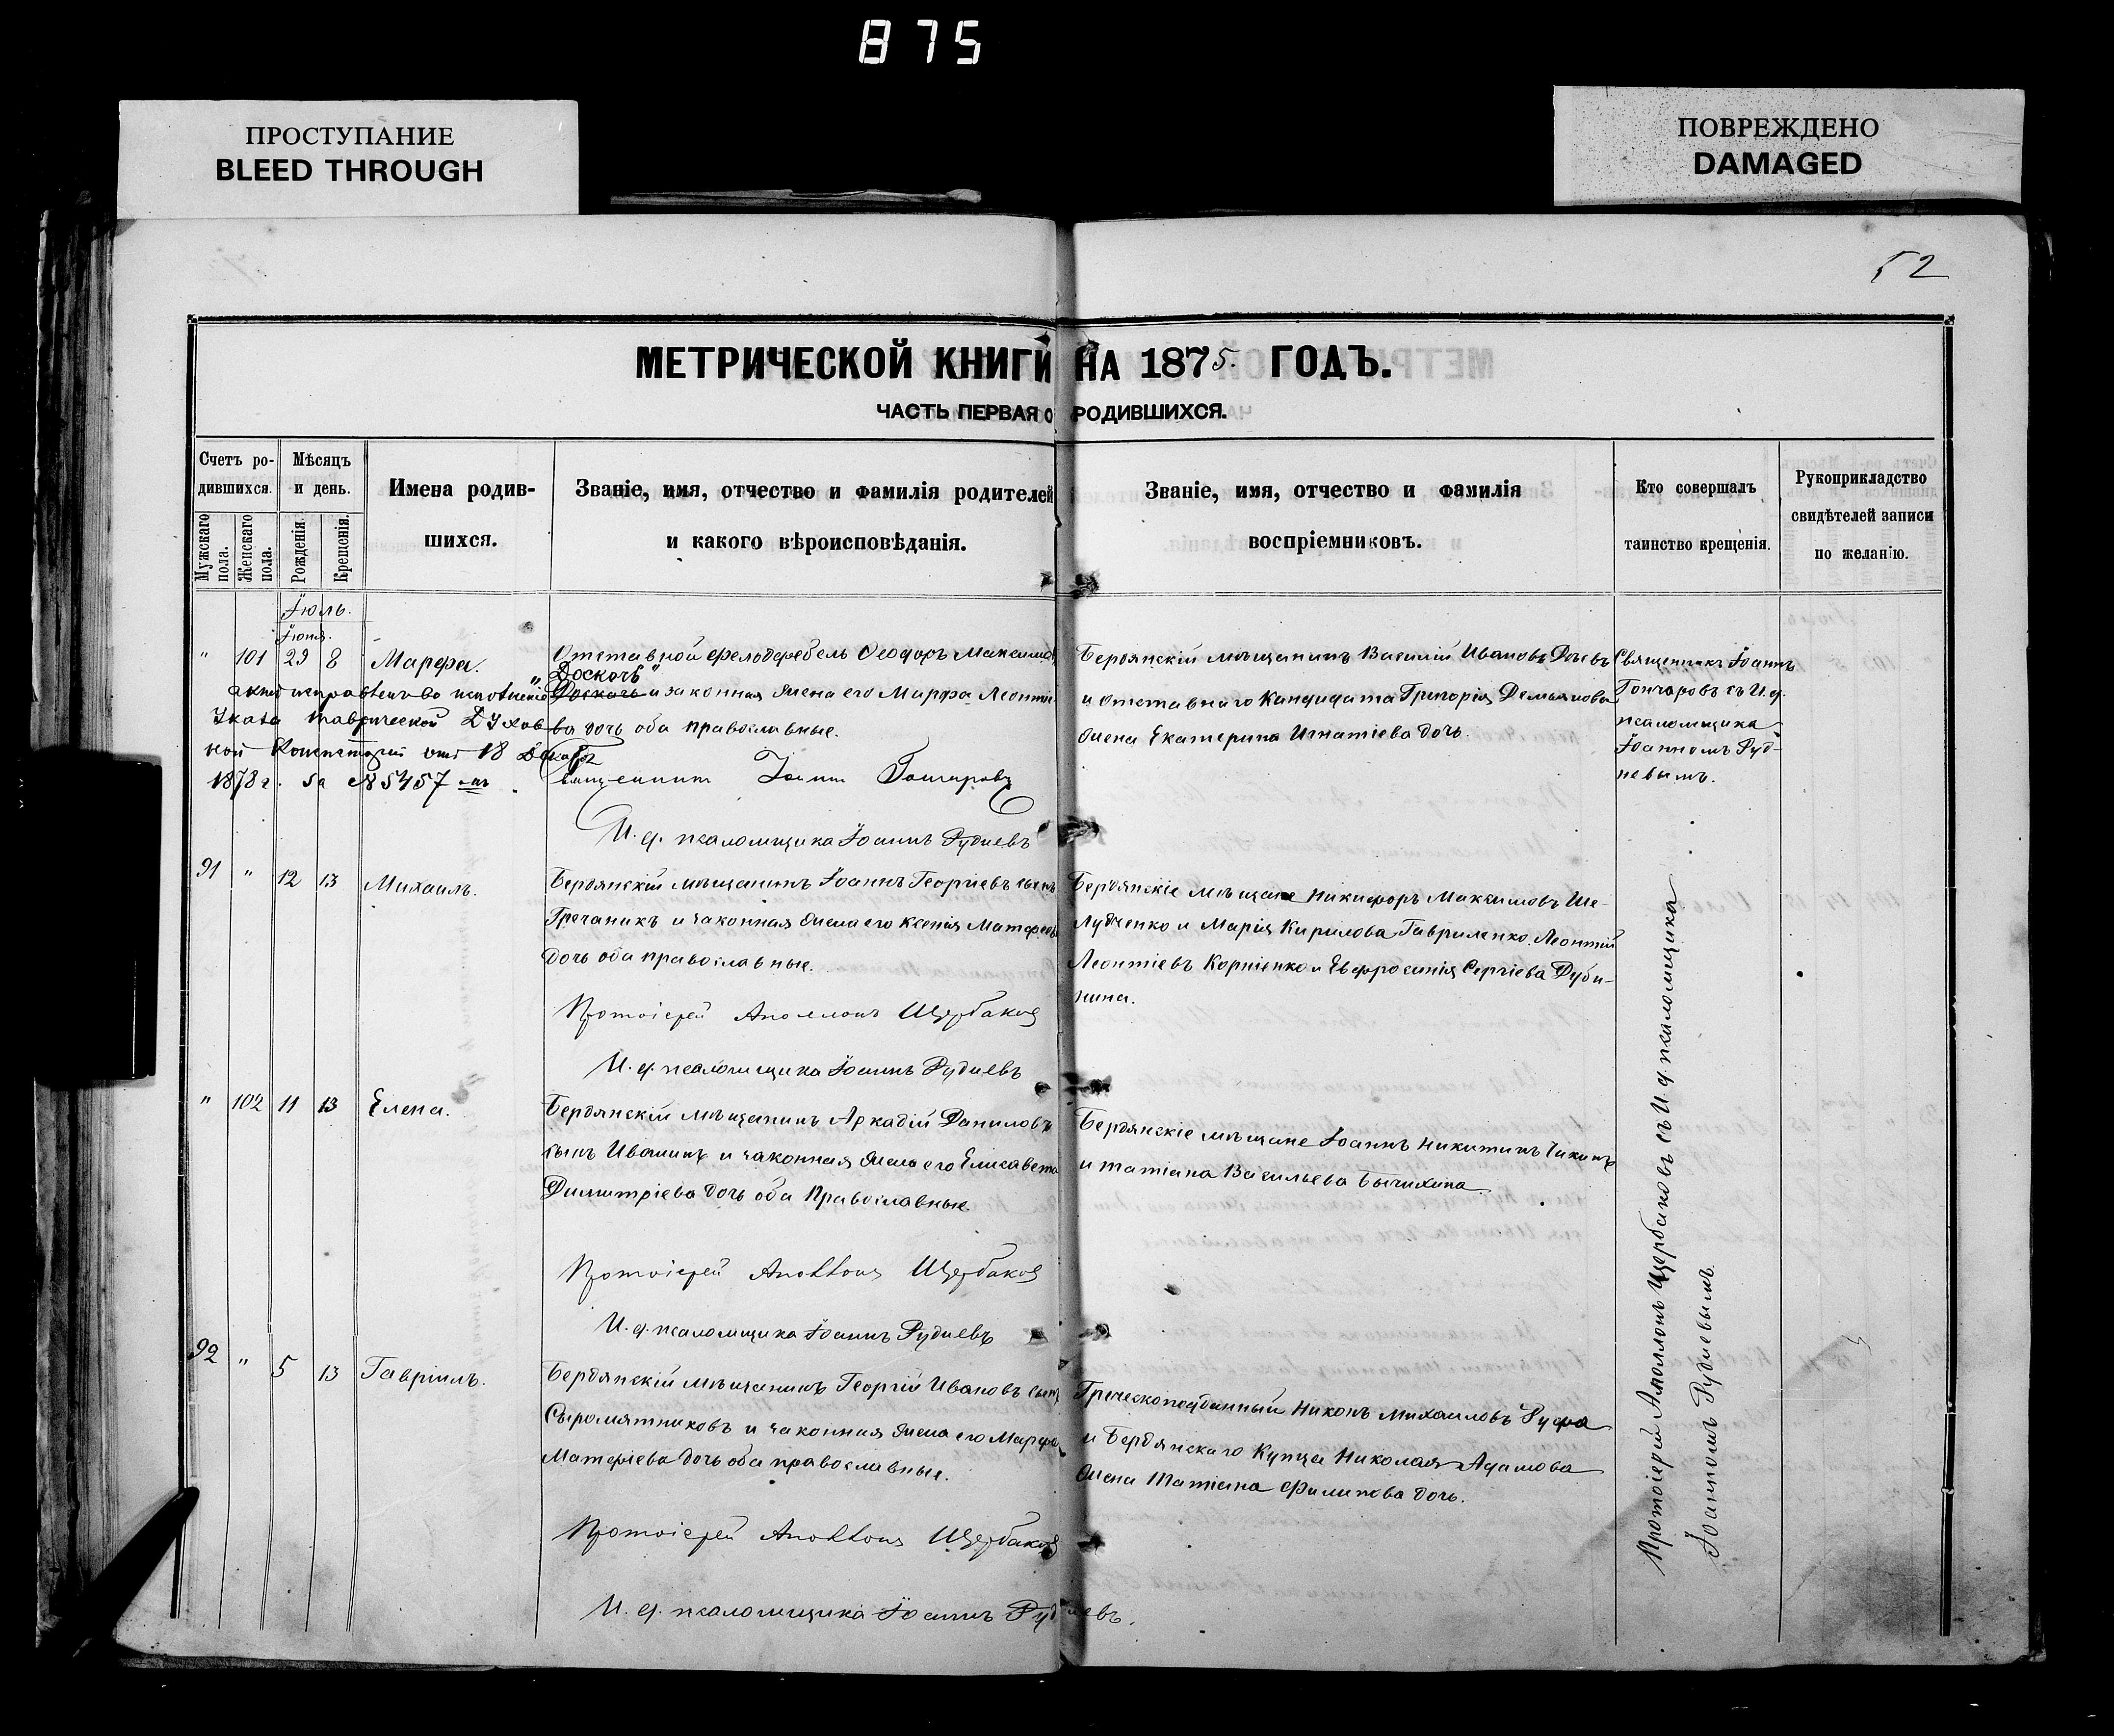 875
ПРОСТУПАНИЕ
BLEED THROUGH
ПОВРЕЖДЕНО
DAMAGED
52
МЕТРИЧЕСКОЙ КНИГИ НА 1875. ГОДЪ.
ЧАСТЬ ПЕРВАЯ О РОДИВШИХСЯ.
Счетъ ро-
дившихся.
Мужскаго пола.
Женскаго пола.
Мѣсяцъ
и день.
Рожденія.
Крещенія.
Имена родив-
шихся.
Званіе, имя, отчество и фамилія родителей
и какого вѣроисповѣданія.
Званіе, имя, отчество и фамилія
воспріемниковъ.
Кто совершалъ
таинство крещенія.
Рукоприкладство
свидѣтелей записи
по желанію.
Іюль.
Іюня.
" 101 29 8 Марѳа.
Отставной фельдфебель Ѳеодоръ Максимов
"Доскочъ"
и законная жена его Марфа Леонтіе-
ва дочь оба православные.
Указа Таврической Духов
ной Консисторіи отъ 18 Декабря
1878 г. за № 5457 мъ
Священникъ Іоаннъ Гончаровъ
И. д. псаломщика Іоаннъ Рудневъ
Бердянскій мѣщанинъ Василій Ивановъ
и отставнаго Кандидата Григорія Демьянова
жена Екатерина Игнатіева дочь.
Священникъ Іоаннъ
Гончаровъ съ И. д.
псаломщика
Іоанномъ Руд-
невымъ.
91 " 12 13 Михаилъ.
Бердянскій мѣщанинъ Іоаннъ Георгіевъ сынъ
Гречаникъ и законная жена его Ксенія Матфеева
дочь оба православные.
Протоіерей Аполлонъ Щербаковъ
И. д. псаломщика Іоаннъ Рудневъ
Бердянскіе мѣщане Никифоръ Максимовъ Ше-
лудченко и Марія Кирилова Гавриленко. Леонтій
Леонтіевъ Корніенко и Евфросинія Сергіева Дуби-
нина.
" 102 11 13 Елена.
Бердянскій мѣщанинъ Аркадій Даниловъ
сынъ Ивашинъ и законная жена его Елисавета
Димитріева дочь оба Православные.
Протоіерей Аполлонъ Щербаковъ
И. д. псаломщика Іоаннъ Рудневъ
Бердянскіе мѣщане Іоаннъ Никитинъ Чикинъ
и Татіана Васильева Бычихина.
92 " 5 13 Гавріилъ.
Бердянскій мѣщанинъ Георгій Ивановъ сынъ
Сыромятниковъ и законная жена его Марфа
Матфіева дочь оба православные.
Протоіерей Аполлонъ Щербаковъ
И. д. псаломщика Іоаннъ Рудневъ.
Греческоподданный Никонъ Михаиловъ Руфа
и Бердянскаго Купца Николая Адамова
жена Татіана Филипова дочь.
Протоіерей Аполлонъ Щербаковъ съ И. д. псаломщика
Іоанномъ Рудневымъ.